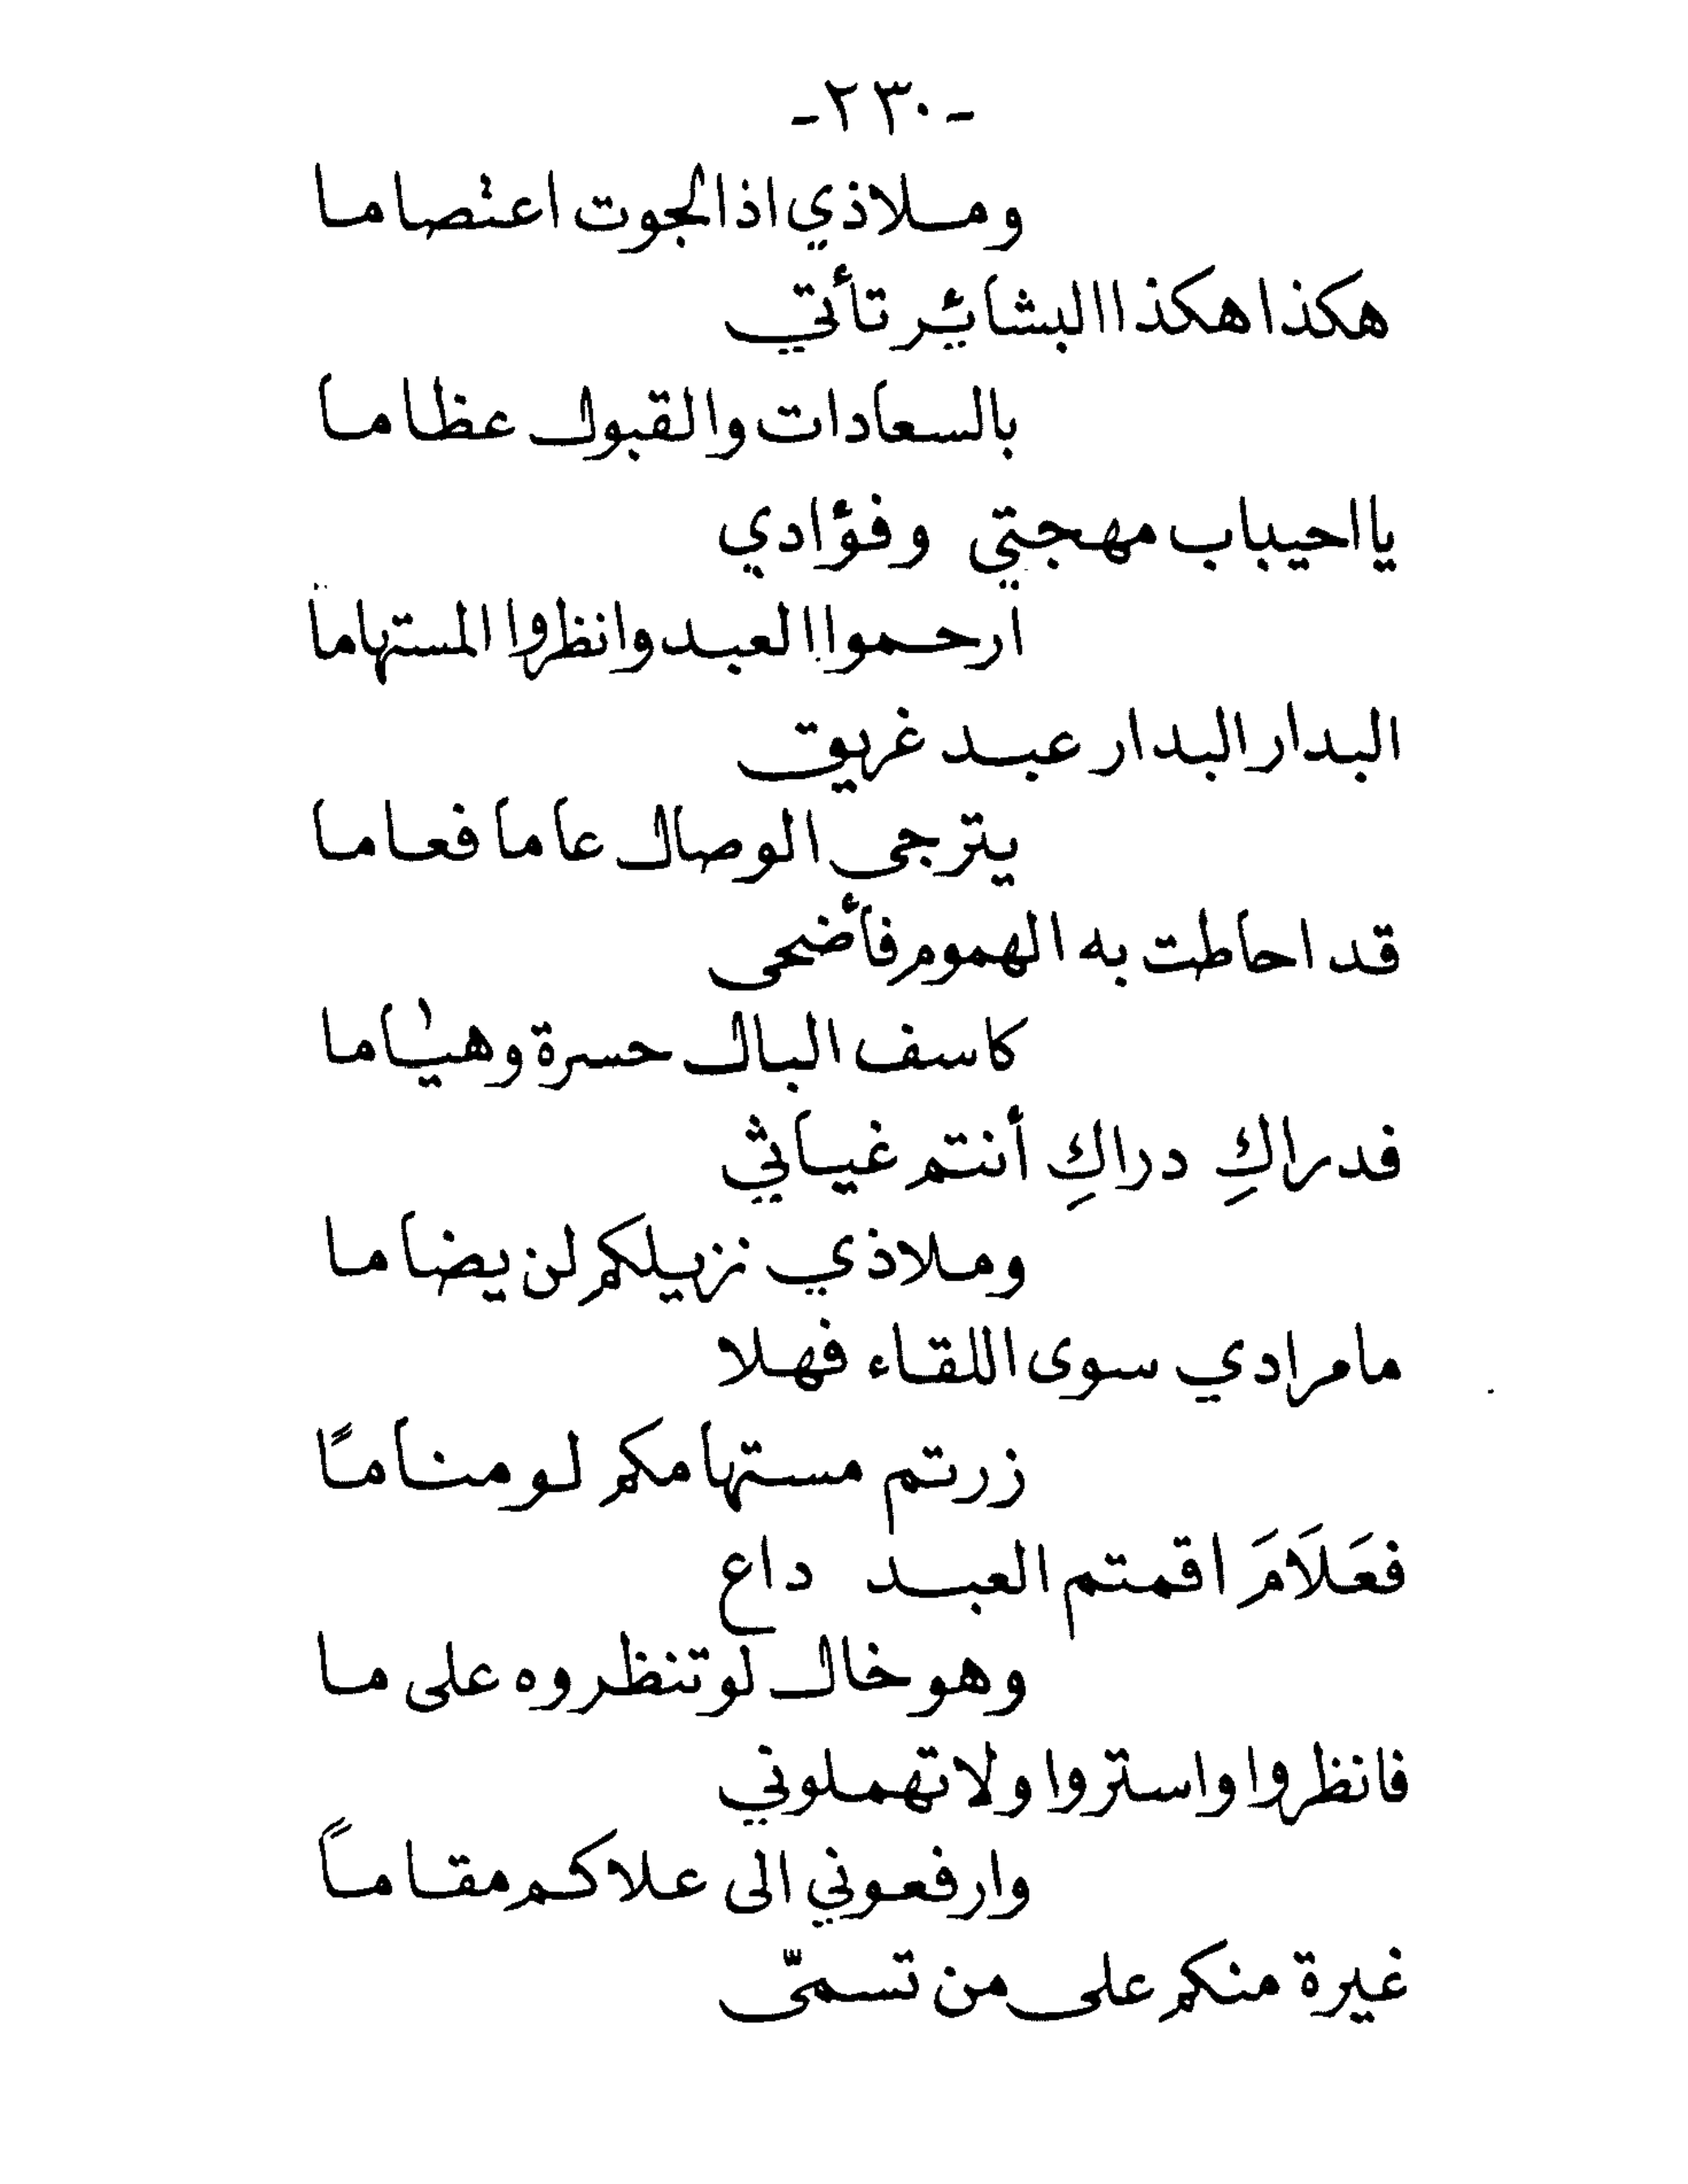 -٢٣٠-
وملاذي اذا لجوت اعتصاما
هكذا هكذا البشائر تأتي
بالسعادات والقبول عظاما
يا احيباب مهجتي وفؤادي
ارحموا العبد وانظروا المستهاما
البدار البدار عبد غريق
يترجى الوصال عاما فعاما
قد احاطت به الهموم فأضحى
كاسف البال حسرة وهياما
فدراكِ دراكِ أنتم غياثي
وملاذي نزيلكم لن يضاما
ما مرادي سوى اللقاء فهلا
زرتم مستهامكم لو منامًا
فعَلَامَ اقمتم العبد داع
وهو خال لو تنظروه على ما
فانظروا واستروا ولا تهملوني
وارفعوني الى علاكم مقاماً
غيرة منكم على من تسمّى